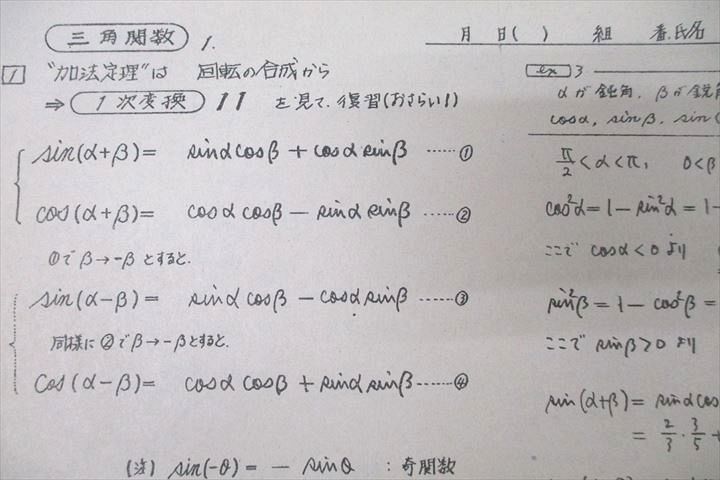 三角関数 1.
月 日( ) 組 番.氏名
1 "加法定理"は 回転の合成から
⇒ 1次変換 11 を見て、復習(おさらい!)
sin(α+β)= sinαcosβ + cosαsinβ ……①
cos(α+β)= cosαcosβ − sinαsinβ ……②
①で β→−β とすると.
sin(α−β)= sinαcosβ − cosαsinβ ……③
同様に ②で β→−βとすると.
cos(α−β)= cosαcosβ + sinαsinβ ……④
(注) sin(−θ) = − sinθ : 奇関数
ex 3
αが鈍角、βが鋭角
cosα, sinβ, sin(
π/2 < α < π, 0<β
cos²α = 1 − sin²α = 1−
ここで cosα<0 より
sin²β = 1 − cos²β =
ここで sinβ>0 より
sin(α+β) = sinαcos
= 2/3・3/5 +